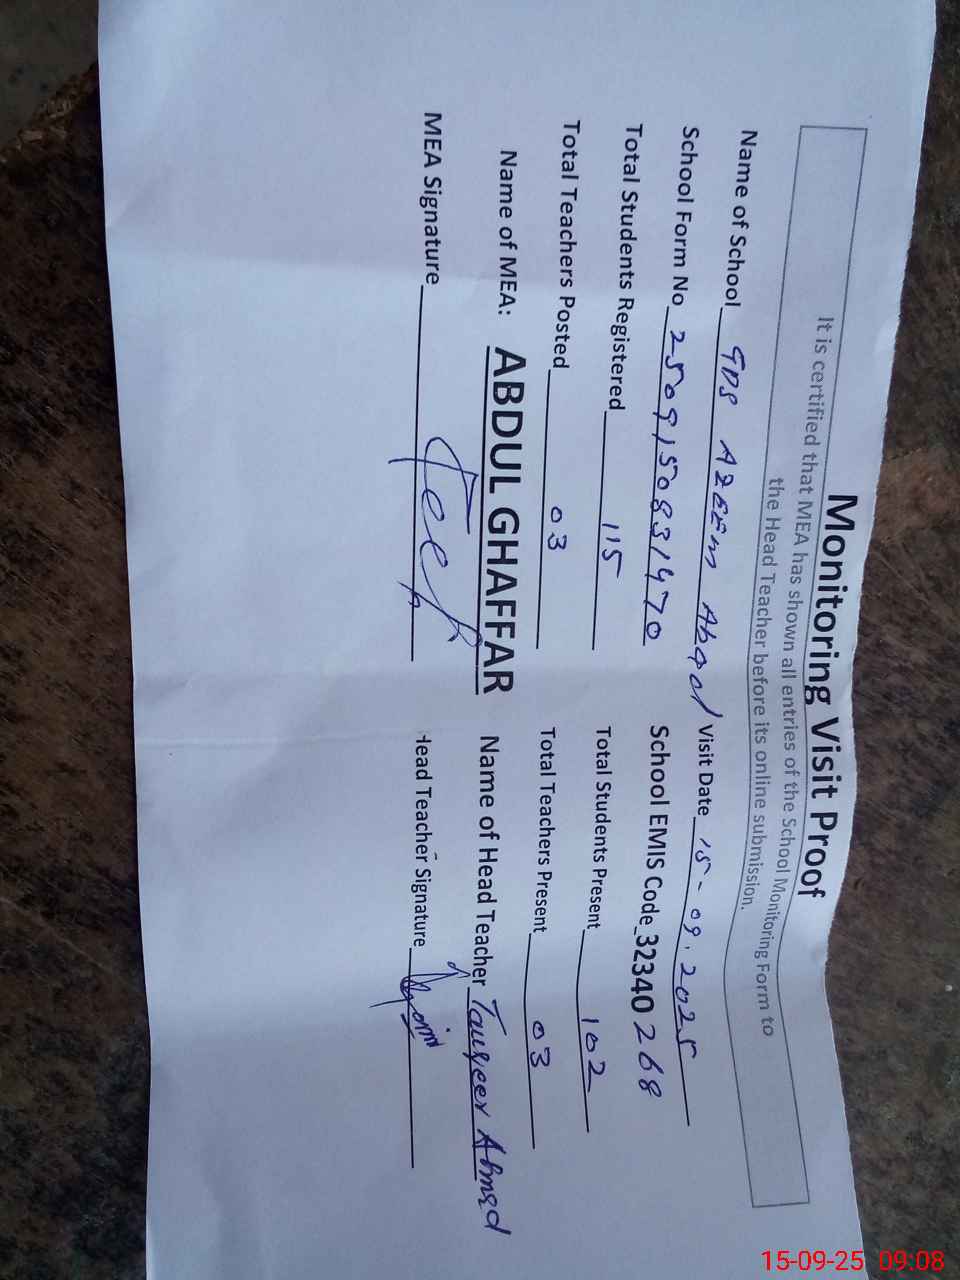 Monitoring Visit Proof
It is certified that MEA has shown all entries of the School Monitoring Form to
the Head Teacher before its online submission.
Name of School GPS AZEEM Abad Visit Date 15-09.2025
School Form No 2509150831470 School EMIS Code 32340268
Total Students Registered 115 Total Students Present 102
Total Teachers Posted 03 Total Teachers Present 03
Name of MEA: ABDUL GHAFFAR Name of Head Teacher Tauqeer Ahmed
MEA Signature Head Teacher Signature
15-09-25 09:08